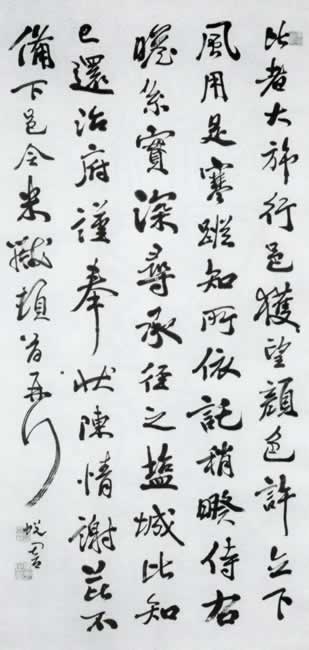 比者大旆行邑獲望顏色許立下
風用是寒蹤知所依託稍暌侍右
瞻系實深尋承徑之鹽城比知
已還治府謹奉狀陳情謝芘不
備下邑令米黻頓首再行